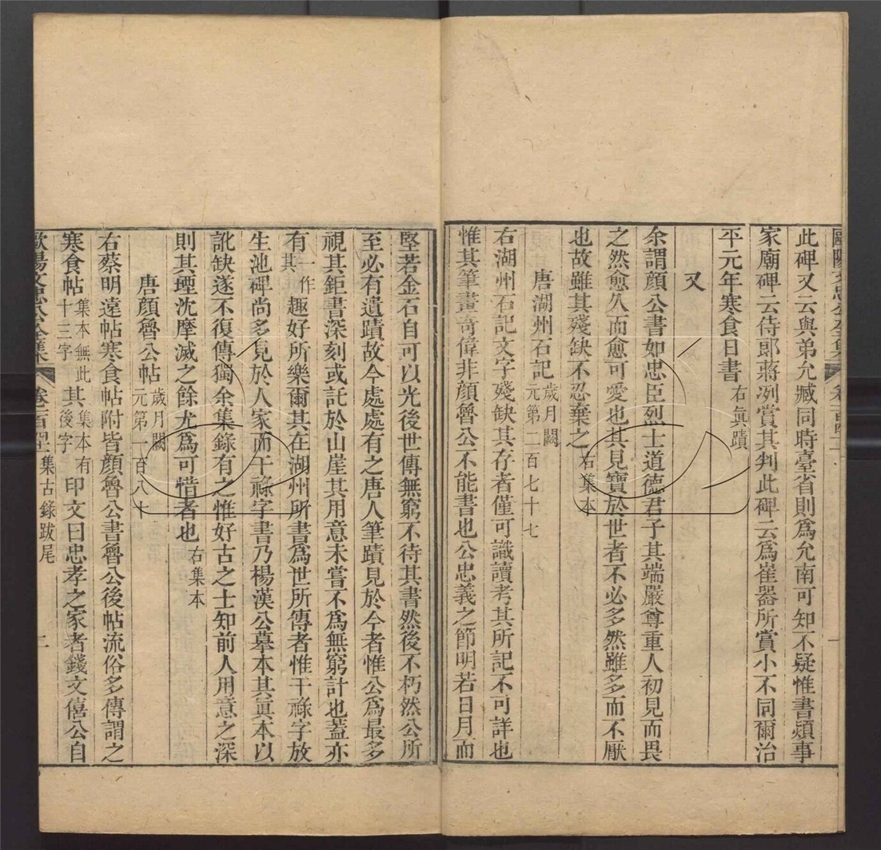 歐陽文忠公全集
此碑又云與弟允臧同時臺省則爲允南可知不疑惟書頖事
家廟碑云侍郎蔣冽賞其判此碑云爲崔器所賞小不同爾治
平元年寒食日書右眞蹟
又
余謂顔公書如忠臣烈士道德君子其端嚴尊重人初見而畏
之然愈久而愈可愛也其見寶於世者不必多然雖多而不厭
也故雖其殘缺不忍棄之右集本
唐湖州石記歲月闕元第二百七十七
右湖州石記文字殘缺其存者僅可識讀考其所記不可詳也
惟其筆畫奇偉非顔魯公不能書也公忠義之節明若日月而
堅若金石自可以光後世傳無窮不待其書然後不朽然公所
至必有遺蹟故今處處有之唐人筆蹟見於今者惟公爲最多
視其鉅書深刻或託於山崖其用意未嘗不爲無窮計也蓋亦
有一作其趣好所樂爾其在湖州所書爲世所傳者惟干祿字放
生池碑尚多見於人家而干祿字書乃楊漢公摹本其眞本以
訛缺遂不復傳獨余集錄有之惟好古之士知前人用意之深
則其堙沈摩滅之餘尤爲可惜者也右集本
唐顔魯公帖歲月闕元第一百八十
右蔡明遠帖寒食帖附皆顔魯公書魯公後帖流俗多傳謂之
寒食帖集本無此十三字其集本有後字印文曰忠孝之家者錢文僖公自
歐陽文忠公全集 卷 集古錄跋尾 二